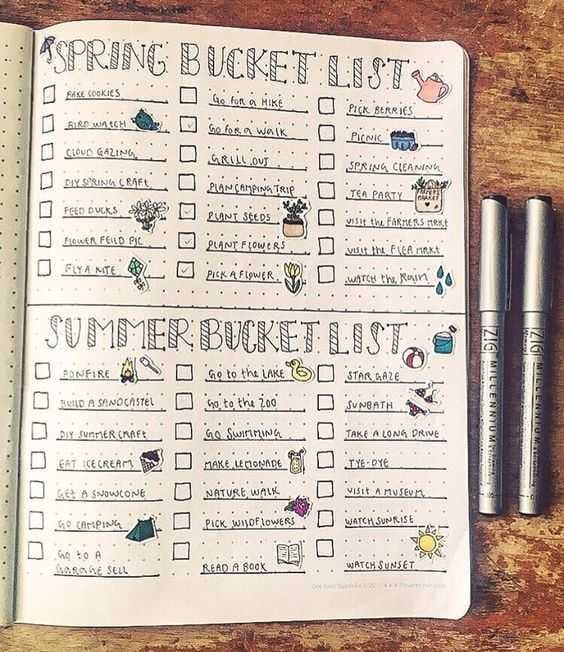 SPRING BUCKET LIST
BAKE COOKIES
BIRD WATCH
CLOUD GAZING
DIY SPRING CRAFT
FEED DUCKS
FLOWER FEILD PIC
FLY A KITE
GO FOR A HIKE
GO FOR A WALK
GRILL OUT
PLAN CAMPING TRIP
PLANT SEEDS
PLANT FLOWERS
PICK A FLOWER
PICK BERRIES
PICNIC
SPRING CLEANING
TEA PARTY
FARMER'S
MARKET
VISIT the FARMERS MAKT
VISIT the FLEA MAKT
WATCH the RAIN
SUMMER BUCKET LIST
BONFIRE
BUILD A SANDCASTEL
DIY SUMMER CRAFT
EAT ICE CREAM
GET A SNOWCONE
GO CAMPING
GO TO A
GARAGE SELL
GO to the LAKE
GO to the ZOO
GO SWIMMING
MAKE LEMONADE
NATURE WALK
PICK WILDFLOWERS
READ A BOOK
STAR GAZE
SUNBATH
TAKE A LONG DRIVE
TYE-DYE
VISIT A MUSEUM
WATCH SUNRISE
WATCH SUNSET
ZIG MILLENNIUM
ZIG MILLENNIUM